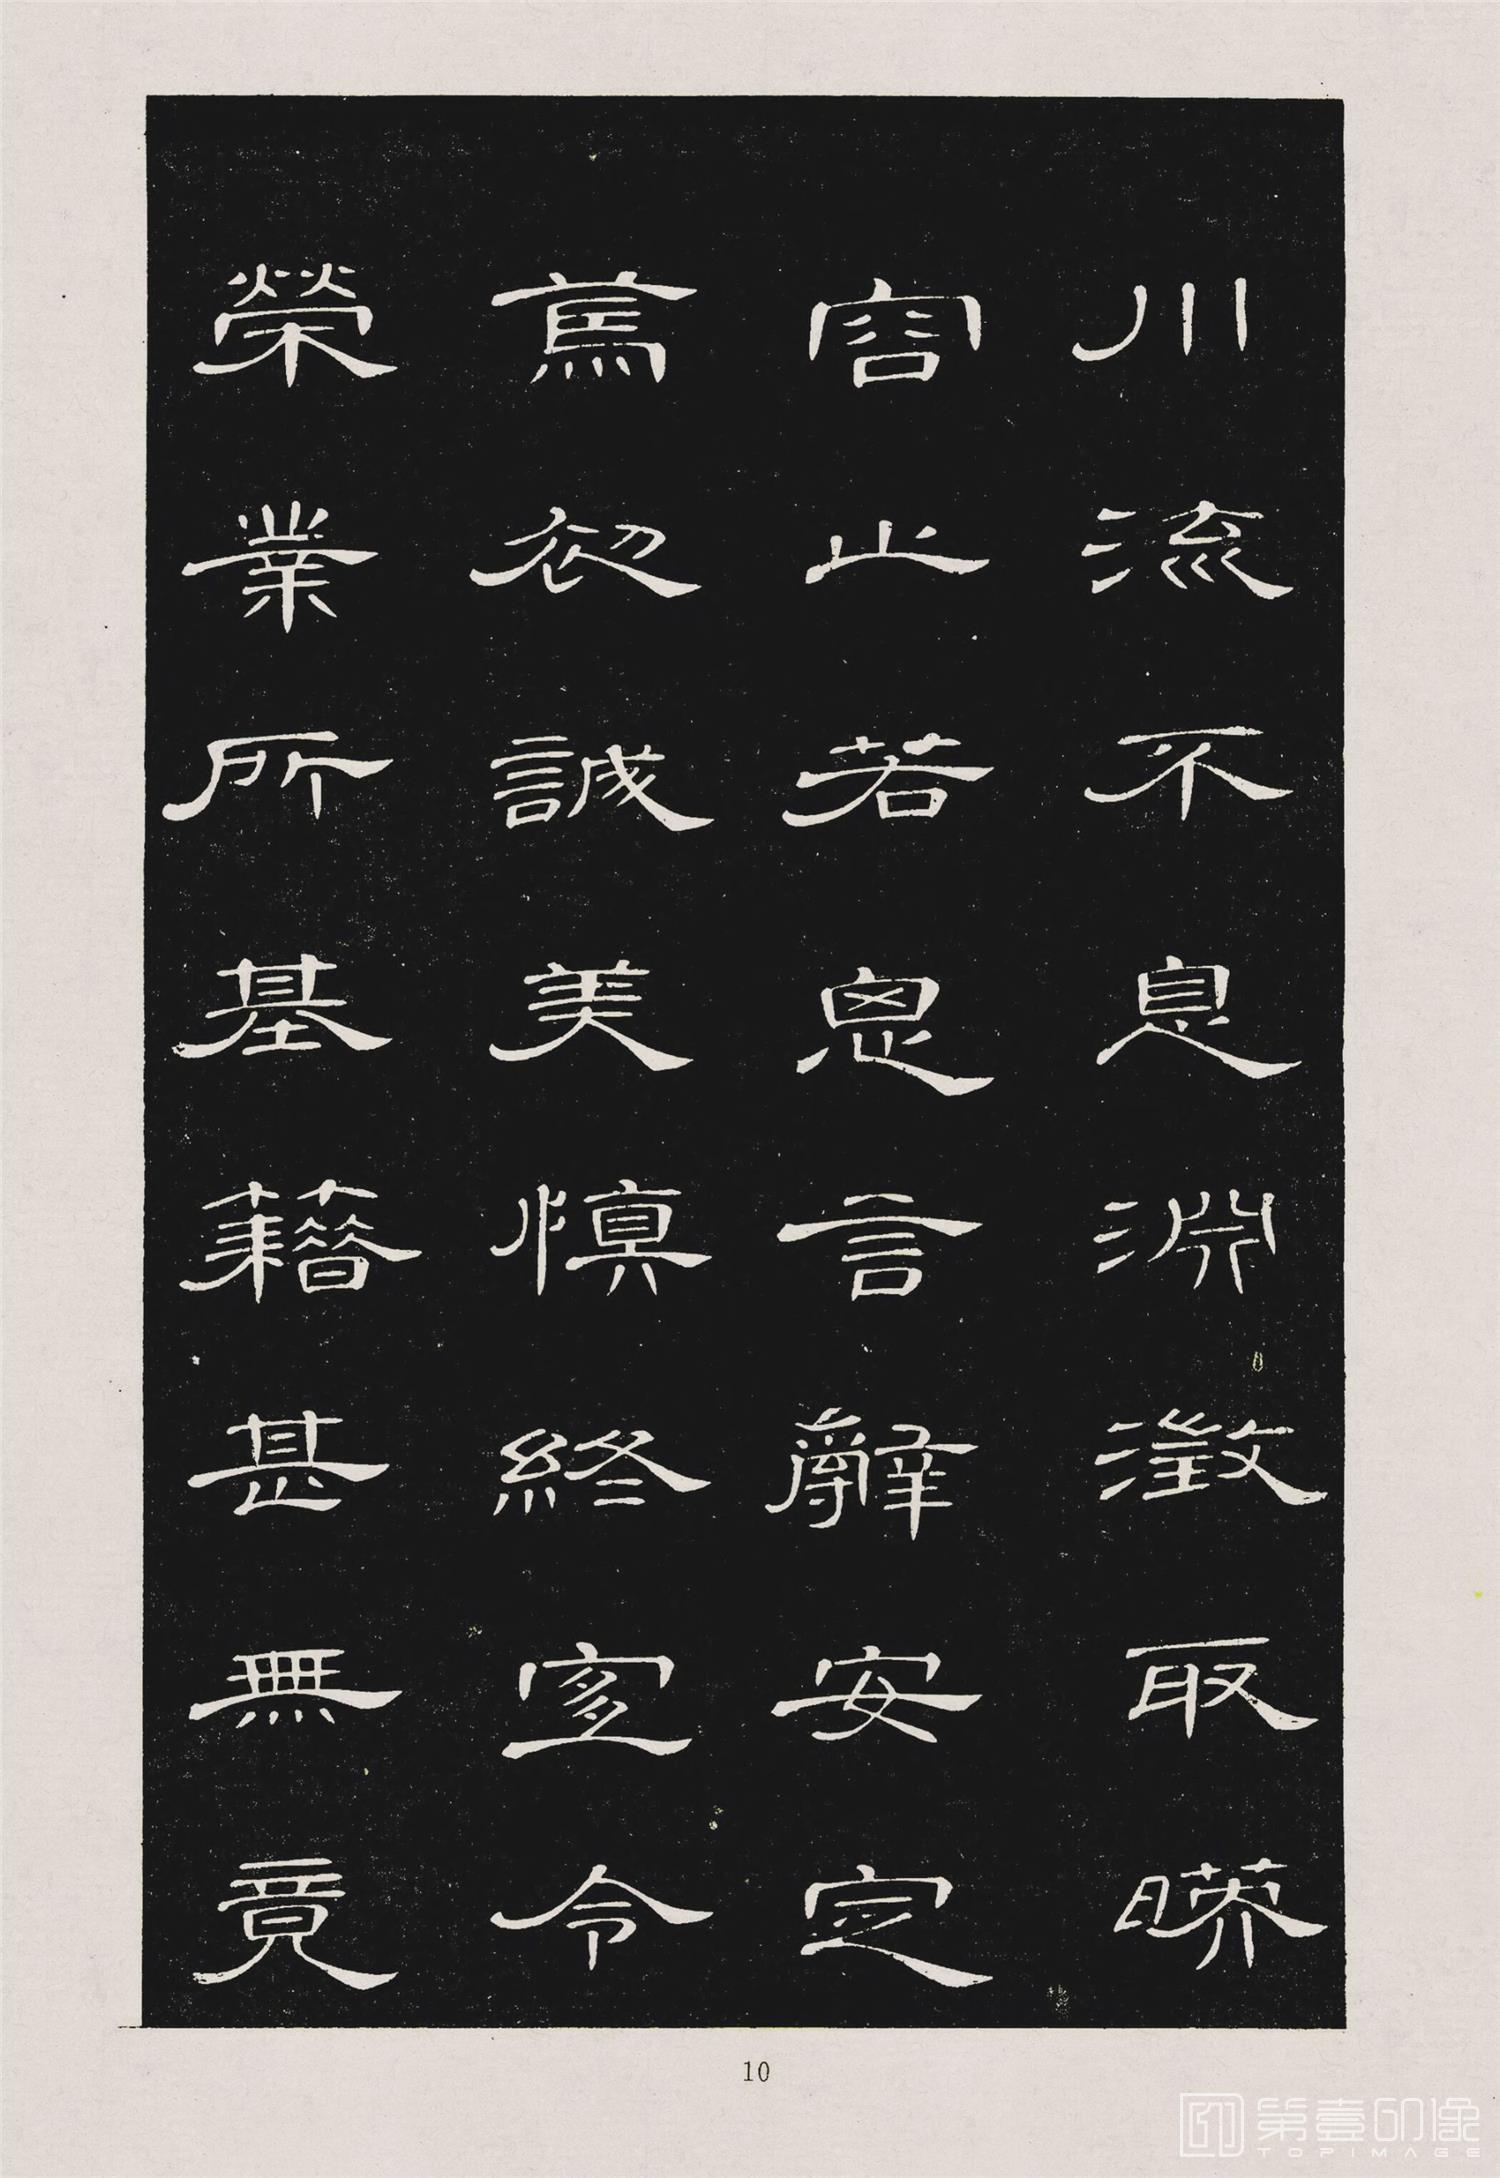 川流不息淵澂取暎
容止若思言辭安定
篤初誠美慎終宜令
榮業所基籍甚無竟
10
第壹印像
TOPIMAGE